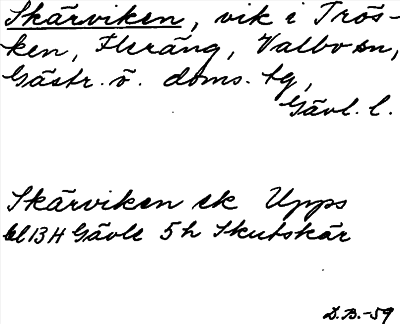 Skärviken, vik i Trös-
ken, Fleräng, Valbo sn,
Gästr. ö. doms. tg,
Gävl. l.
Skärviken ek Upps
bl 13 H Gävle 5 h Skutskär
D.B.-59